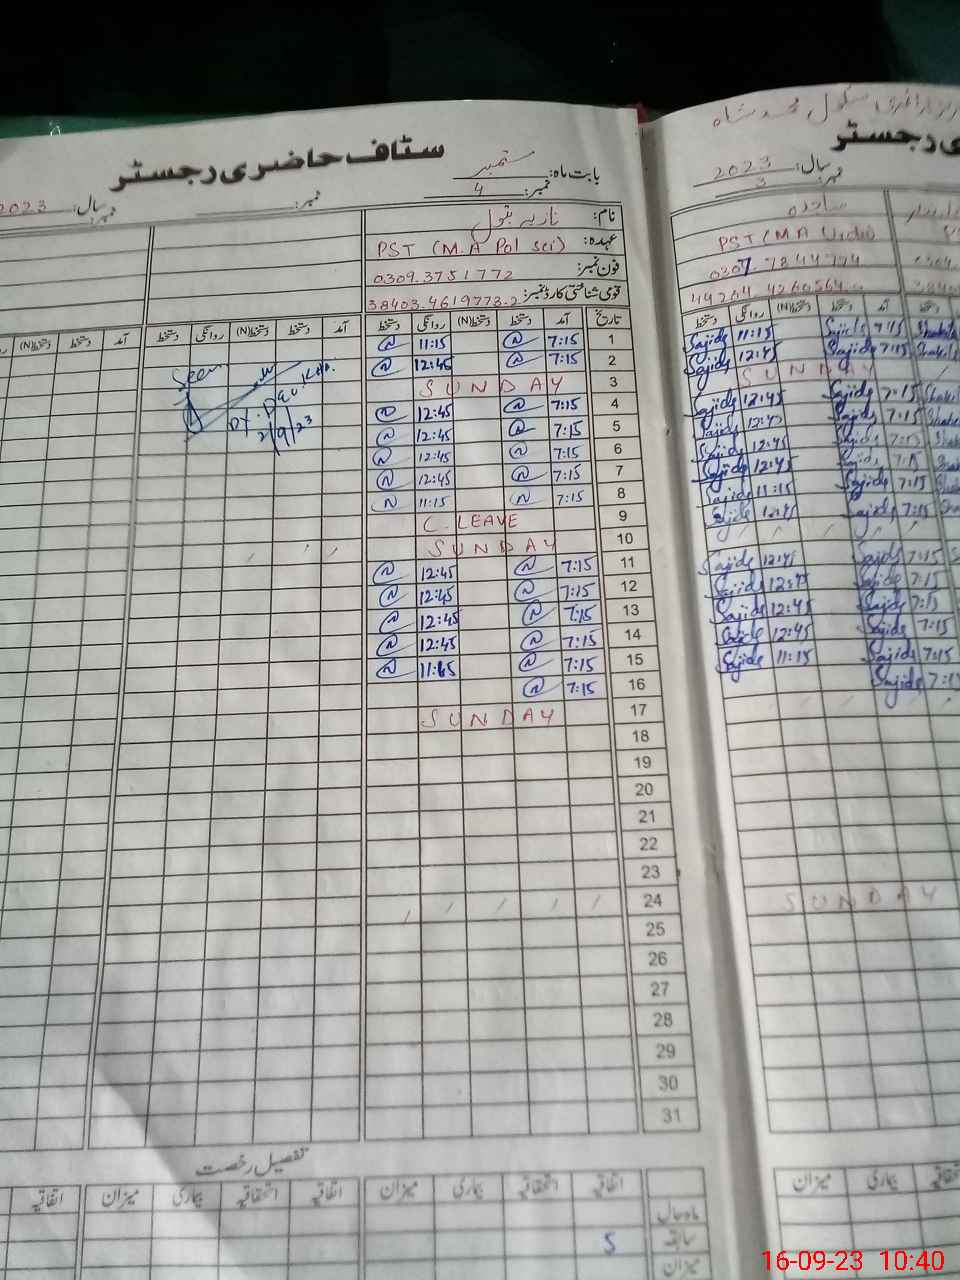 سٹاف حاضری رجسٹر
بابت ماہ: ستمبر
نمبر: 4
نمبر:
سال: 2023
نمبر:
نام:
عہدہ: PST (M.A Pol sci)
فون نمبر: 0309.3751772
قومی شناختی کارڈ نمبر: 38403.4619773.2
تاریخ آمد دستخط دستخط(N) روانگی دستخط آمد دستخط دستخط(N) روانگی دستخط آمد دستخط دستخط(N)
1 7:15 @ 11:15 @
2 7:15 @ 12:45 @
3 SUNDAY
4 7:15 @ 12:45 @
5 7:15 @ 12:45 @
6 7:15 @ 12:45 @
7 7:15 @ 12:45 @
8 7:15 N 11:15 N
9 C. LEAVE
10 SUNDAY
11 7:15 @ 12:45 @
12 7:15 @ 12:45 @
13 7:15 @ 12:45 @
14 7:15 @ 12:45 @
15 7:15 @ @
16 7:15 @
17 SUNDAY
18
19
20
21
22
23
24
25
26
27
28
29
30
31
Seen
2/9/23
تفصیل رخصت
اتفاقیہ استحقاقیہ بیماری میزان اتفاقیہ استحقاقیہ بیماری میزان اتفاقیہ
ماہ حال
سابقہ 5
میزان
رجسٹر
سال: 2023
نمبر: 3
ساجدہ
PST (M.A Urdu)
0307.7844774
آمد دستخط دستخط(N) روانگی دستخط
7:15 Sajida 11:15 Sajida
7:15 Sajida 12:45 Sajida
SUNDAY
7:15 Sajida 12:45 Sajida
7:15 Sajida 12:45 Sajida
7:15 Sajida 12:45 Sajida
7:15 Sajida 12:45 Sajida
7:15 Sajida 11:15 Sajida
7:15 Sajida 12:45 Sajida
7:15 Sajida 12:45 Sajida
7:15 Sajida 12:45 Sajida
7:15 Sajida 12:45 Sajida
7:15 Sajida 12:45 Sajida
7:15 Sajida 11:15 Sajida
7:15 Sajida
SUNDAY
بیماری میزان
16-09-23 10:40